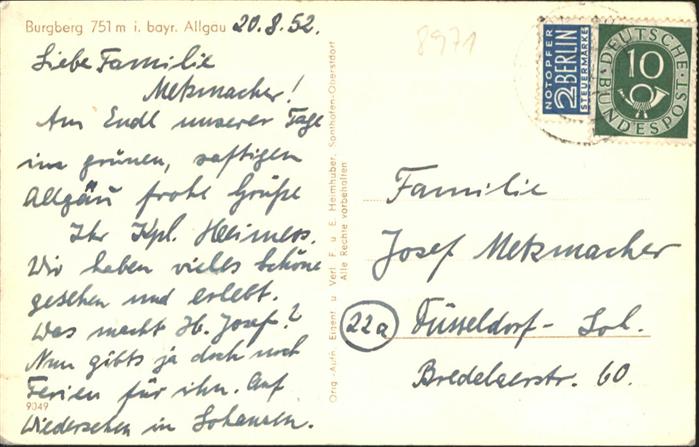 Burgberg 751 m i. bayr. Allgäu 20.8.52.
Liebe Familie
Metzmacher!
Am Ende unserer Tage
im grünen, saftigen
Allgäu frohe Grüße
Ihr Kpl. Heimess.
Wir haben vieles Schöne
gesehen und erlebt.
Was macht H. Josef?
Nun gibts ja doch noch
Ferien für ihn. Auf
Wiedersehen in
9049
Orig.-Aufn. Eigent. u. Verl. F. u. E. Heimhuber, Sonthofen-Oberstdorf
Alle Rechte vorbehalten
8971
NOTOPFER
2 BERLIN
STEUERMARKE
DEUTSCHE
10
BUNDESPOST
Familie
Josef Metzmacher
22a Düsseldorf-
60.